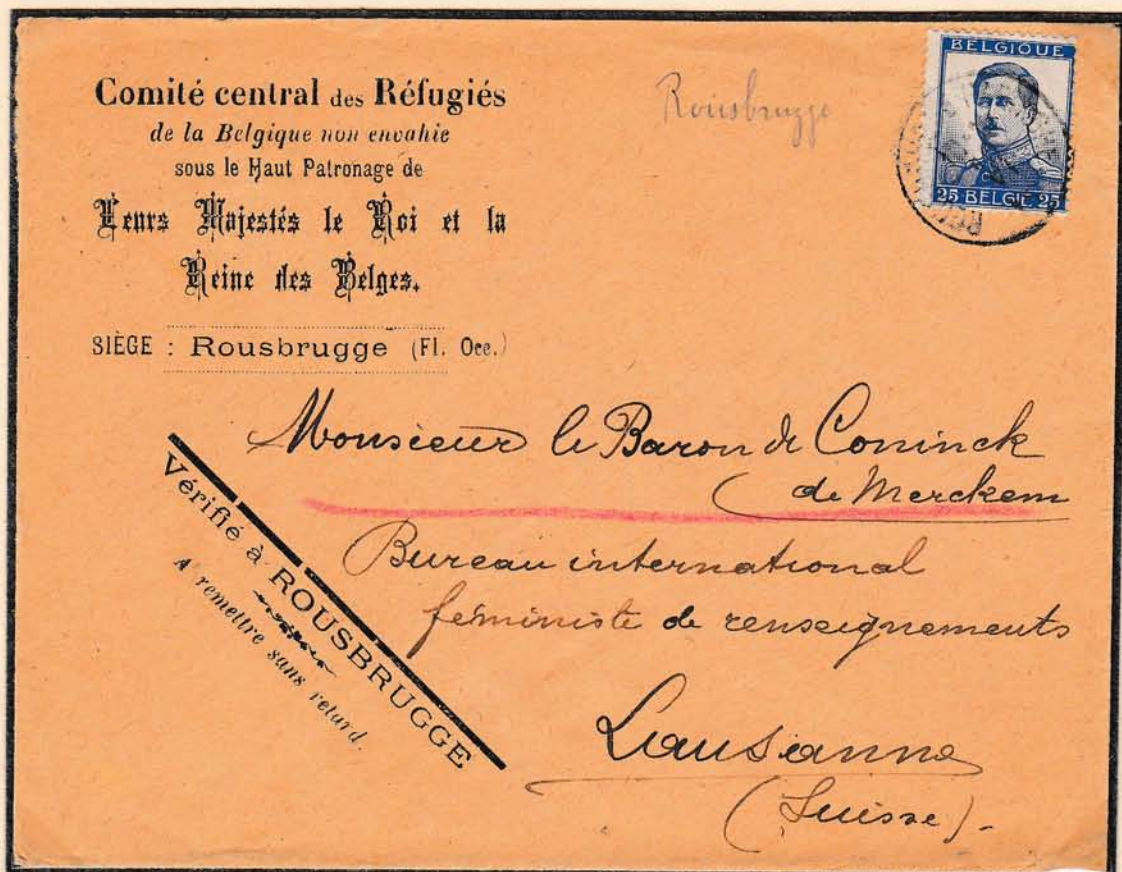 Comité central des Réfugiés
de la Belgique non envahie
sous le Haut Patronage de
Leurs Majestés le Roi et la
Reine des Belges.
SIÈGE : Rousbrugge (Fl. Occ.)
Rousbrugge
BELGIQUE
25 BELGIE 25
Monsieur le Baron de Coninck
de Merckem
Bureau international
féministe de renseignements
Lausanne
(Suisse).
Vérifié à ROUSBRUGGE
A remettre sans retard.